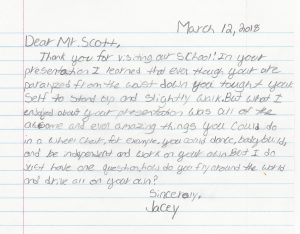 March 12, 2018
Dear Mr. Scott,
Thank you for visiting our School! In your
presentation I learned that even though your are
paralyzed from the waist down you tought your
self to stand up and slightly walk. But what I
enjoyed about your presentation was all of the
and even amazing things you could do
in a wheel chair, for example, you could dance, body build,
and be independent and work on your own. But I do
Just have one question, how do you fly around the world
and drive all on your own?
Sincerely,
Jacey